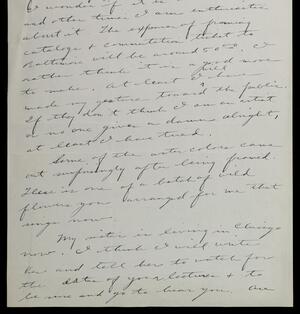 I wonder if it is
and other times I am enthusiastic
about it. The expense of framing
catalogs & commutation ticket to
Baltimore will be around 50.00. I
rather think it is a good move
to make. At least I have
made my gesture toward the public.
If they don't think I am an artist
or no one gives a damn alright,
at least I have tried.
Some of the water colors came
out surprisingly after being framed.
There is one of a batch of wild
flowers you arranged for me that
sings now.
My sister is living in Chicago
now. I think I will write
her and tell her to watch for
the date of your lectures & to
be sure and go to hear you. Are